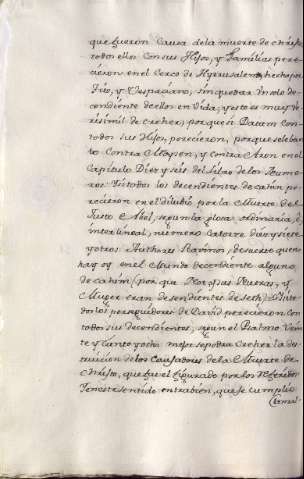 que fueron Causa dela muerte de christo
todos ellos Con sus Hijos, y Familias pere-
cieron en el Cerco de Hyerusalem, hecho por
Tito, y Vespaciano, sin quedar un solo de-
cendiente de ellos en Vida, y esto es muy ve-
risimil de creher; porque si Datan Con
todos sus Hijos, perecieron, porque se leban-
to Contra Moysen, y contra Aron en el
Capitulo Diez y seis del Libro de los Nume-
ros: Si todos los decendientes de cahin pe-
recieron en el dilubio por la Muerte del
Justo Abel, segun la glosa ordinaria, e
interlineal, numero Catorce diez y siete
y otros Authores Ravinos, de suerte que no
hay oy en el Mundo decendiente alguno
de cahim (por que Noe, y sus Nueras, y
Muger eran desendientes de Seth) Si to-
dos los perseguidores de David perecieron con
todos sus decendientes, segun el Psalmo Vein-
te y cinco y ocho mejor se podra Creher la des-
truicion de los Causadores de la Muerte de-
christo, que fue el figurado por los referidos
en este sentido tambien, que se cumplio